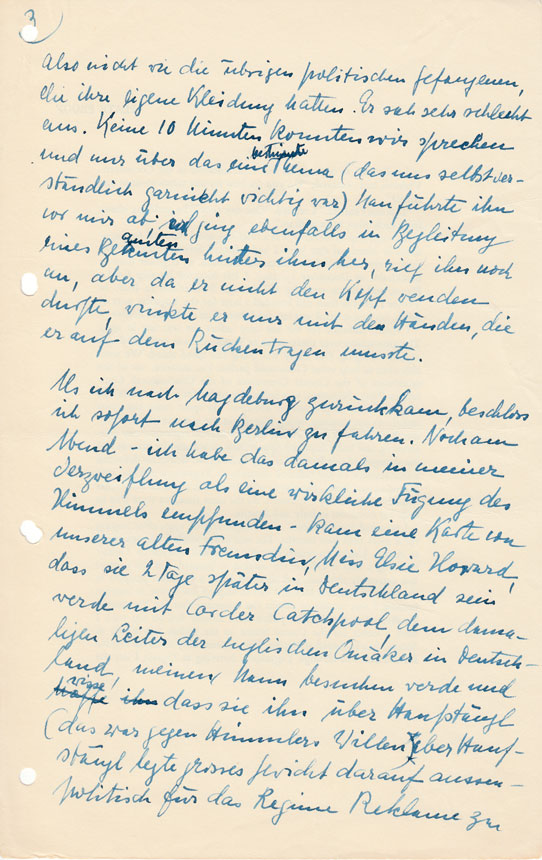 3
also nicht wie die übrigen politischen Gefangenen,
die ihre eigene Kleidung hatten. Er sah sehr schlecht
aus. Keine 10 Minuten konnten wir sprechen
und nur über das eine bestimmte Thema (das uns selbstver-
ständlich garnicht wichtig war) Man führte ihn
vor mir ab, ich ging ebenfalls in Begleitung
eines Beamten hinter ihm her, rief ihn noch
an, aber da er nicht den Kopf wenden
durfte, winkte er nur mit den Händen, die
er auf dem Rücken tragen musste.
Als ich nach Magdeburg zurückkam, beschloss
ich sofort nach Berlin zu fahren. Noch am
Abend - ich habe das damals in meiner
Verzweiflung als eine wirkliche Fügung des
Himmels empfunden - kam eine Karte von
unserer alten Freundin, Miss Elsie Howard,
dass sie 2 Tage später in Deutschland sein
werde mit Corder Catchpool, dem dama-
ligen Leiter der englischen Quäker in Deutsch-
land, meinen Mann besuchen werde und
wisse dass sie ihn über Hanfstängl
(das war gegen Himmlers Willen, aber Hanf-
stängl legte grosses Gewicht darauf aussen-
politisch für das Regime Reklame zu